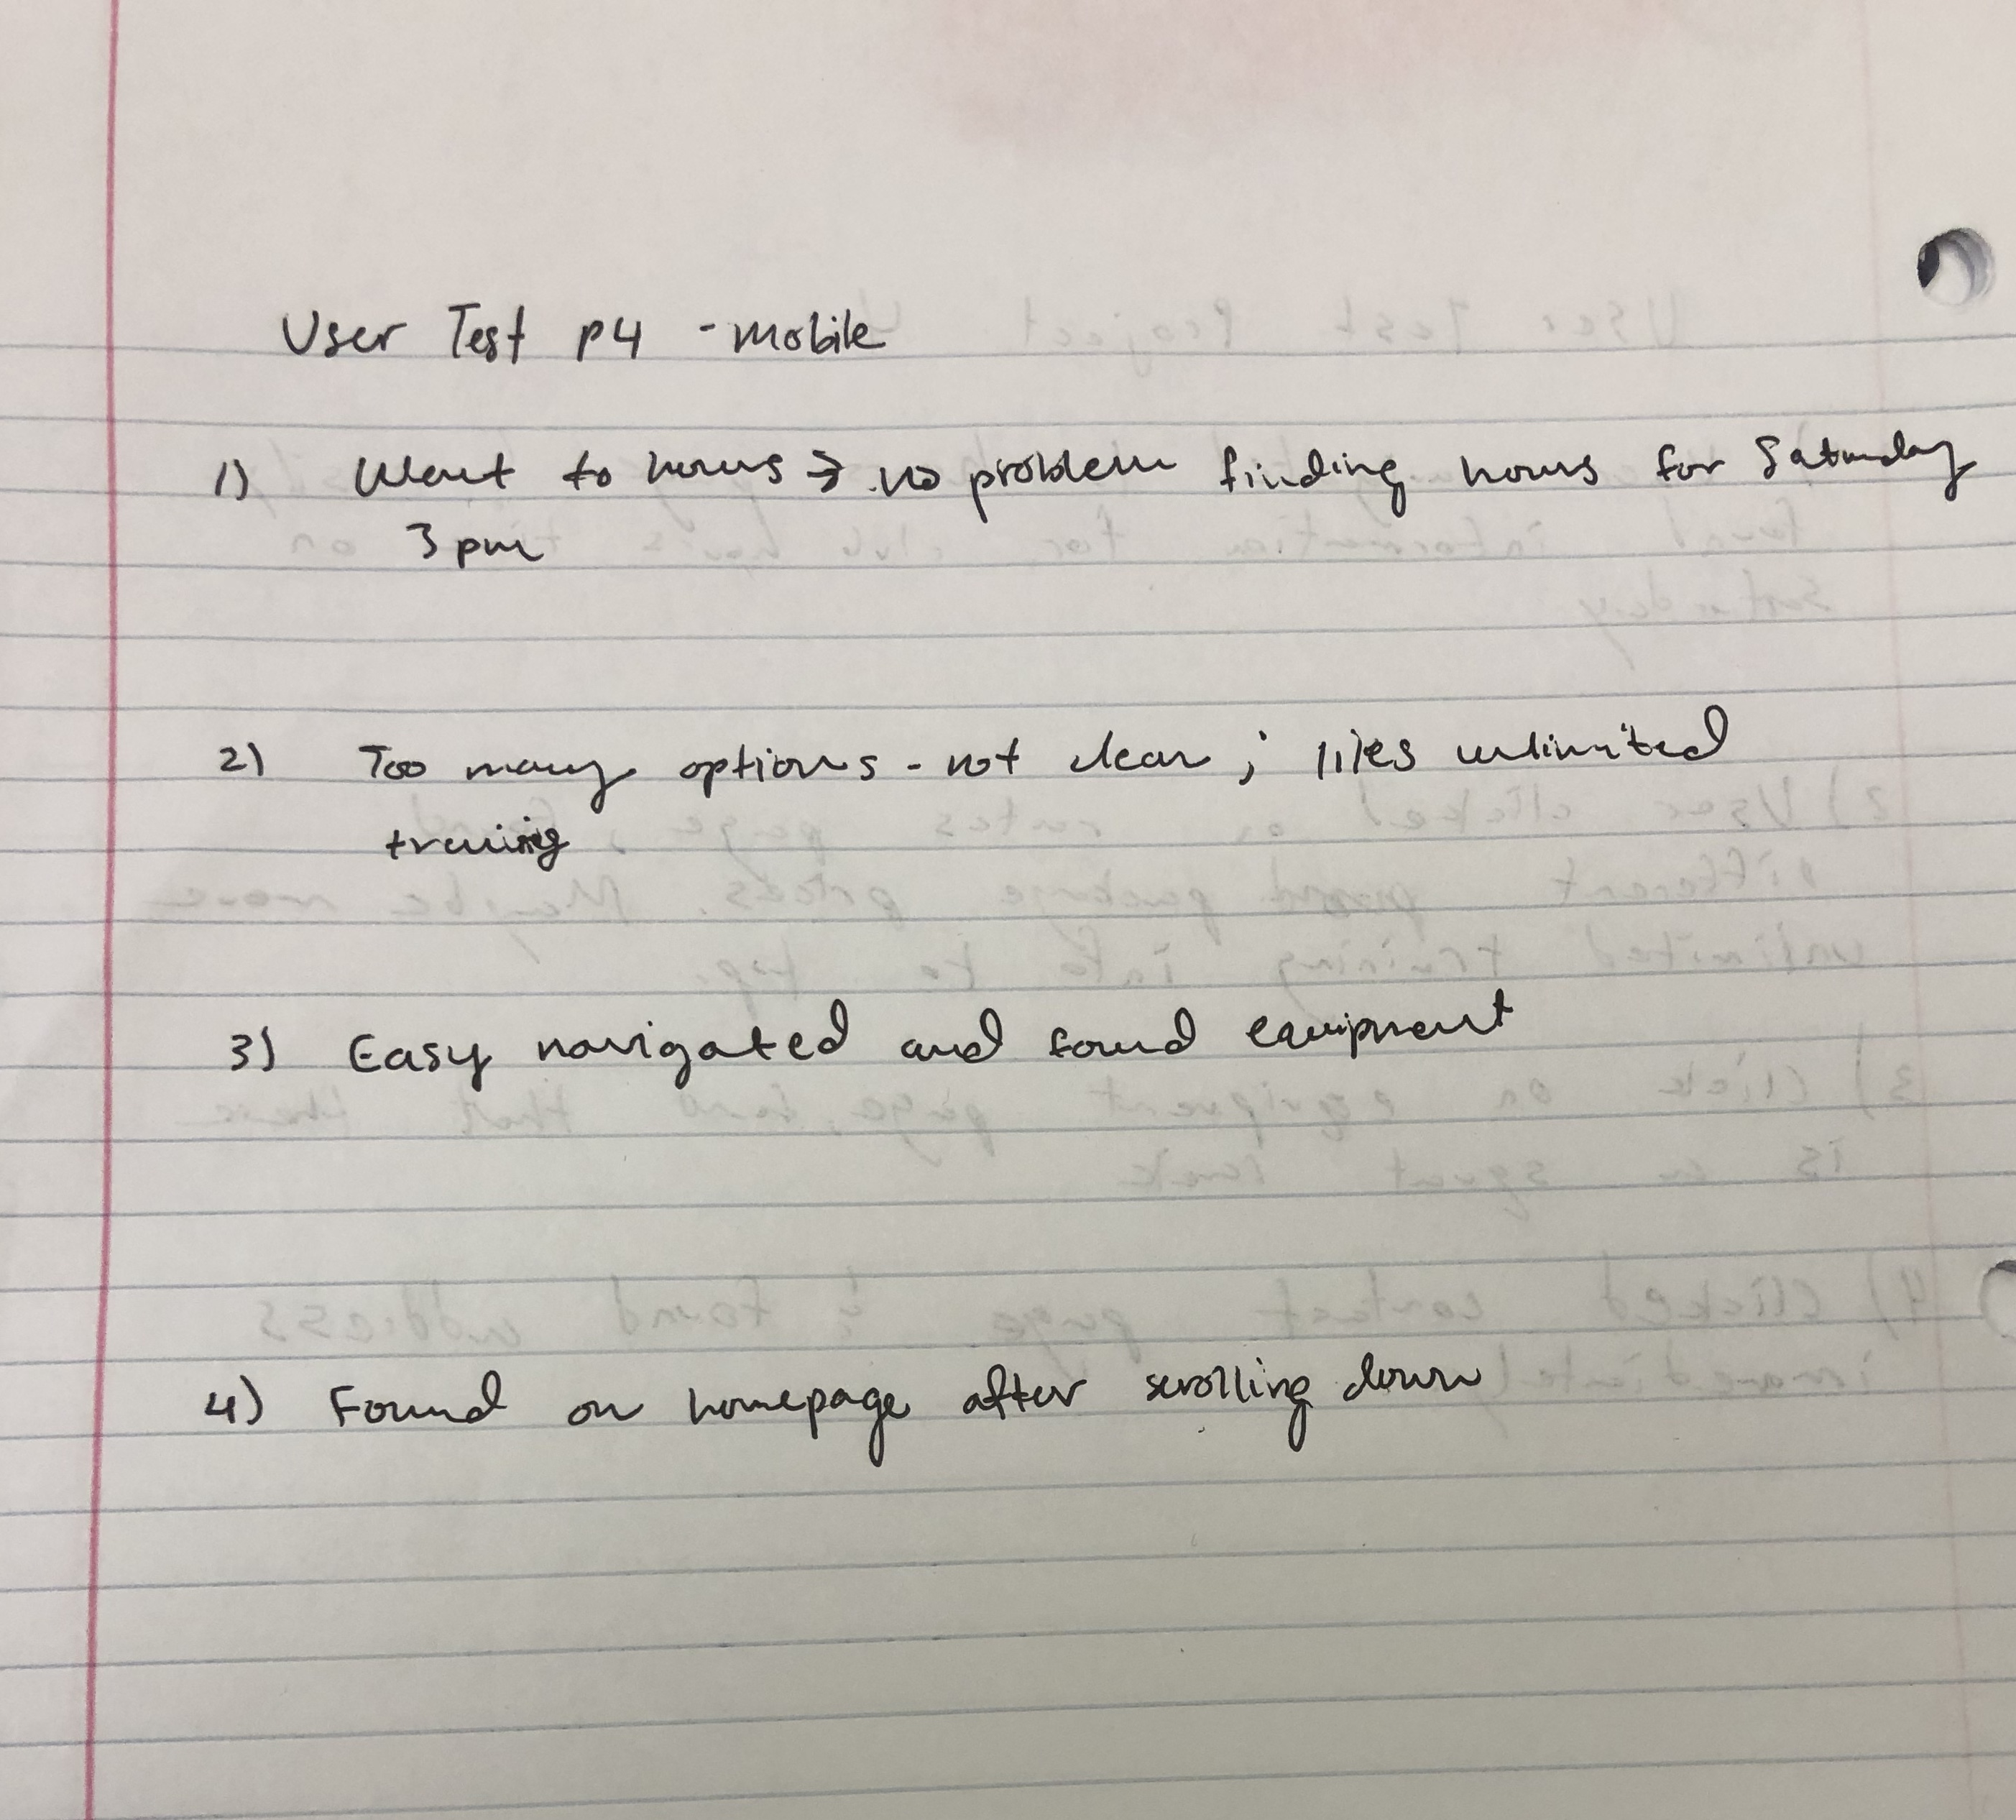 User Test P4 - mobile
1) Went to hours → no problem finding hours for Saturday
3 pm
2) Too many options - not clear ; likes unlimited
training
3) Easy navigated and found equipment
4) Found on homepage after scrolling down